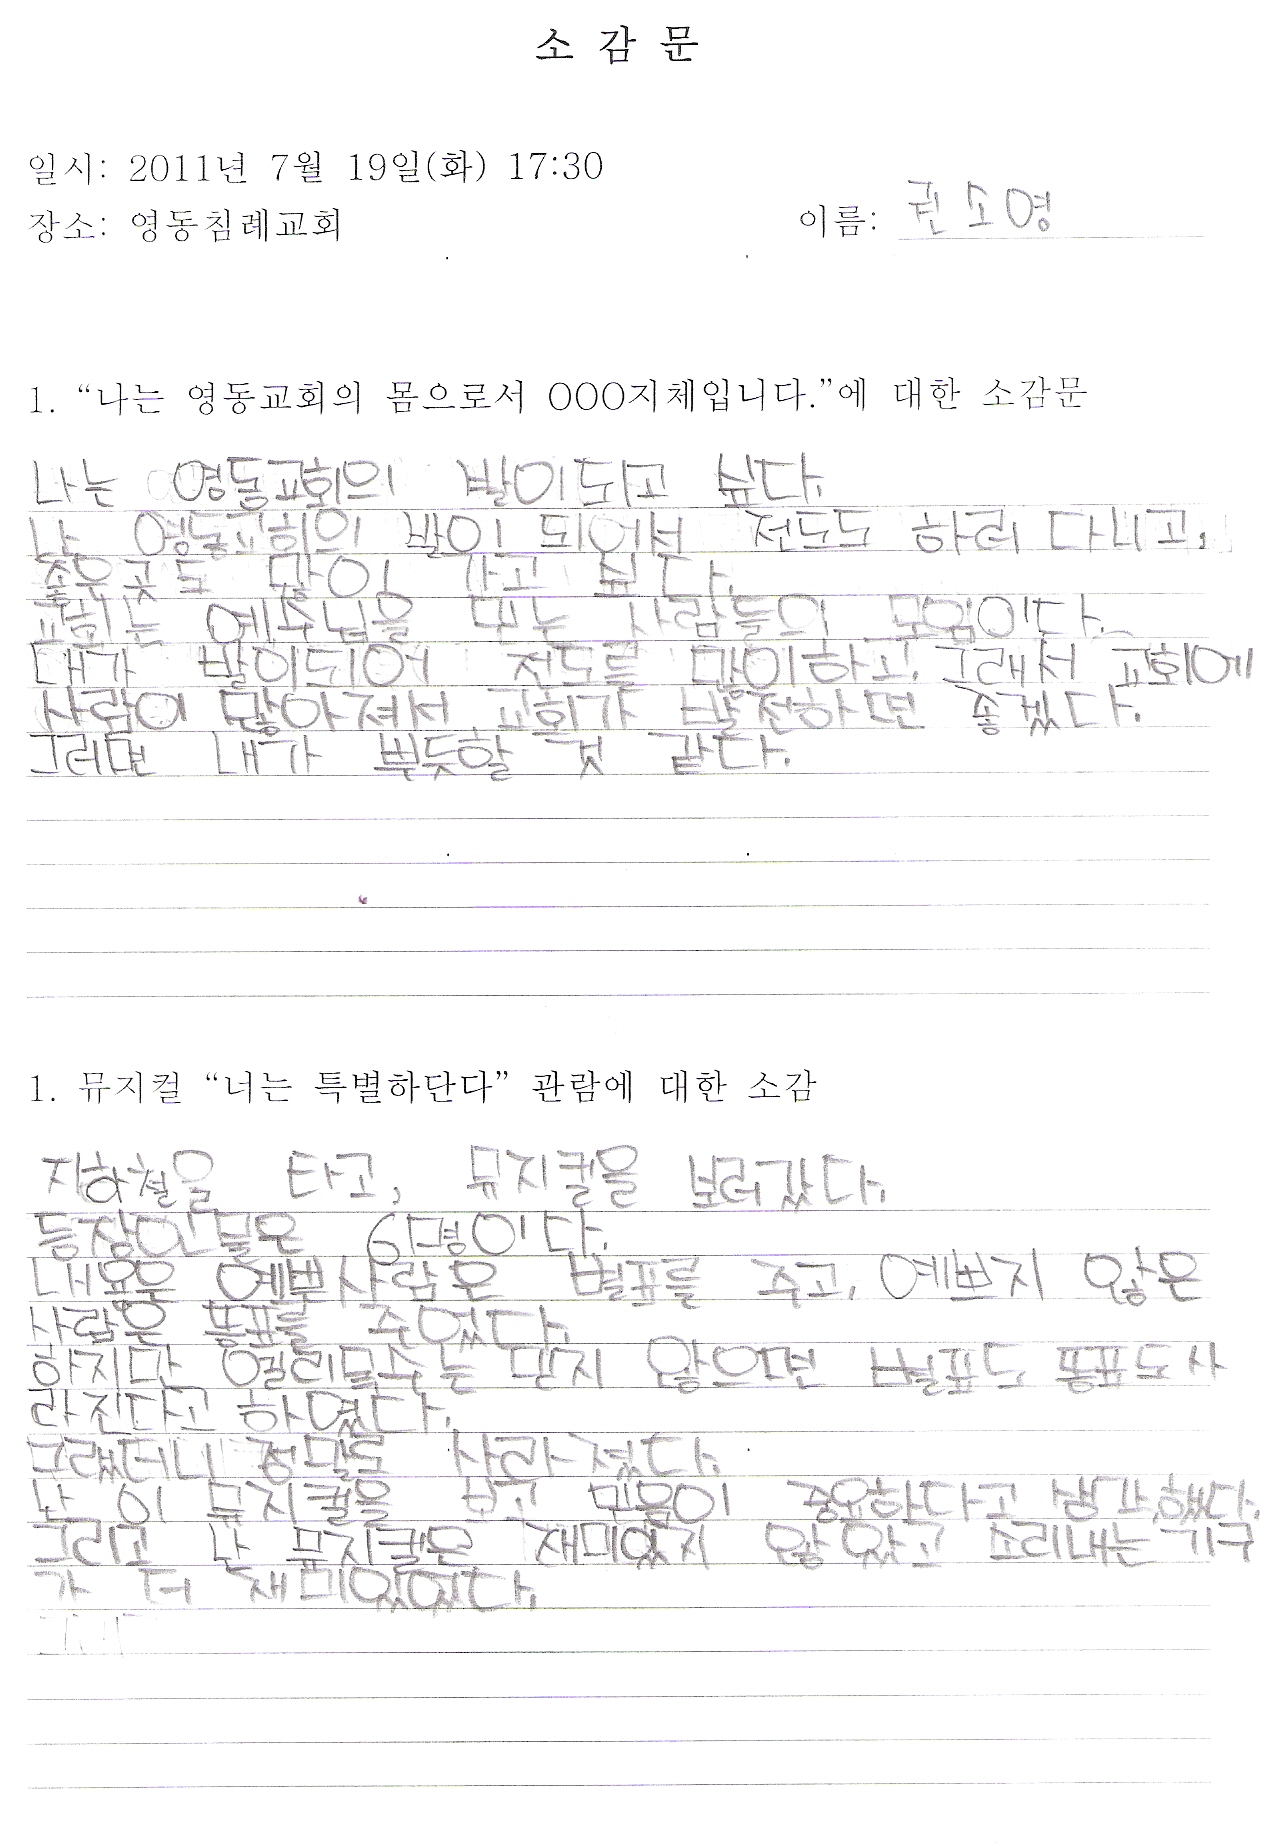 소 감 문
일시: 2011년 7월 19일(화) 17:30
장소: 영동침례교회
이름: 권소영
1. “나는 영동교회의 몸으로서 OOO지체입니다.”에 대한 소감문
나는 영동교회의 발이되고 싶다.
난 영동교회의 발이 되어서 전도도 하러 다니고,
좋은곳도 많이 가고 싶다.
교회는 예수님을 믿는 사람들의 모임이다.
내가 발이되어 전도를 많이하고, 그래서 교회에
사람이 많아져서 교회가 발전하면 좋겠다.
그러면 내가 뿌듯할 것 같다.
1. 뮤지컬 “너는 특별하단다” 관람에 대한 소감
지하철을 타고, 뮤지컬을 보러갔다.
등장인물은 6명이다.
내용은 예쁜사람은 별표를 주고, 예쁘지 않은
사람은 똥표를 주었다.
하지만 엘리목수는 믿지 않으면 별표도 똥표도 사
라진다고 하였다.
그랬더니 정말로 사라졌다.
난 이 뮤지컬을 보고 믿음이 중요하다고 생각했다.
그리고 난 뮤지컬은 재미있지 않았고 소리내는 기구
가 더 재미있었다.